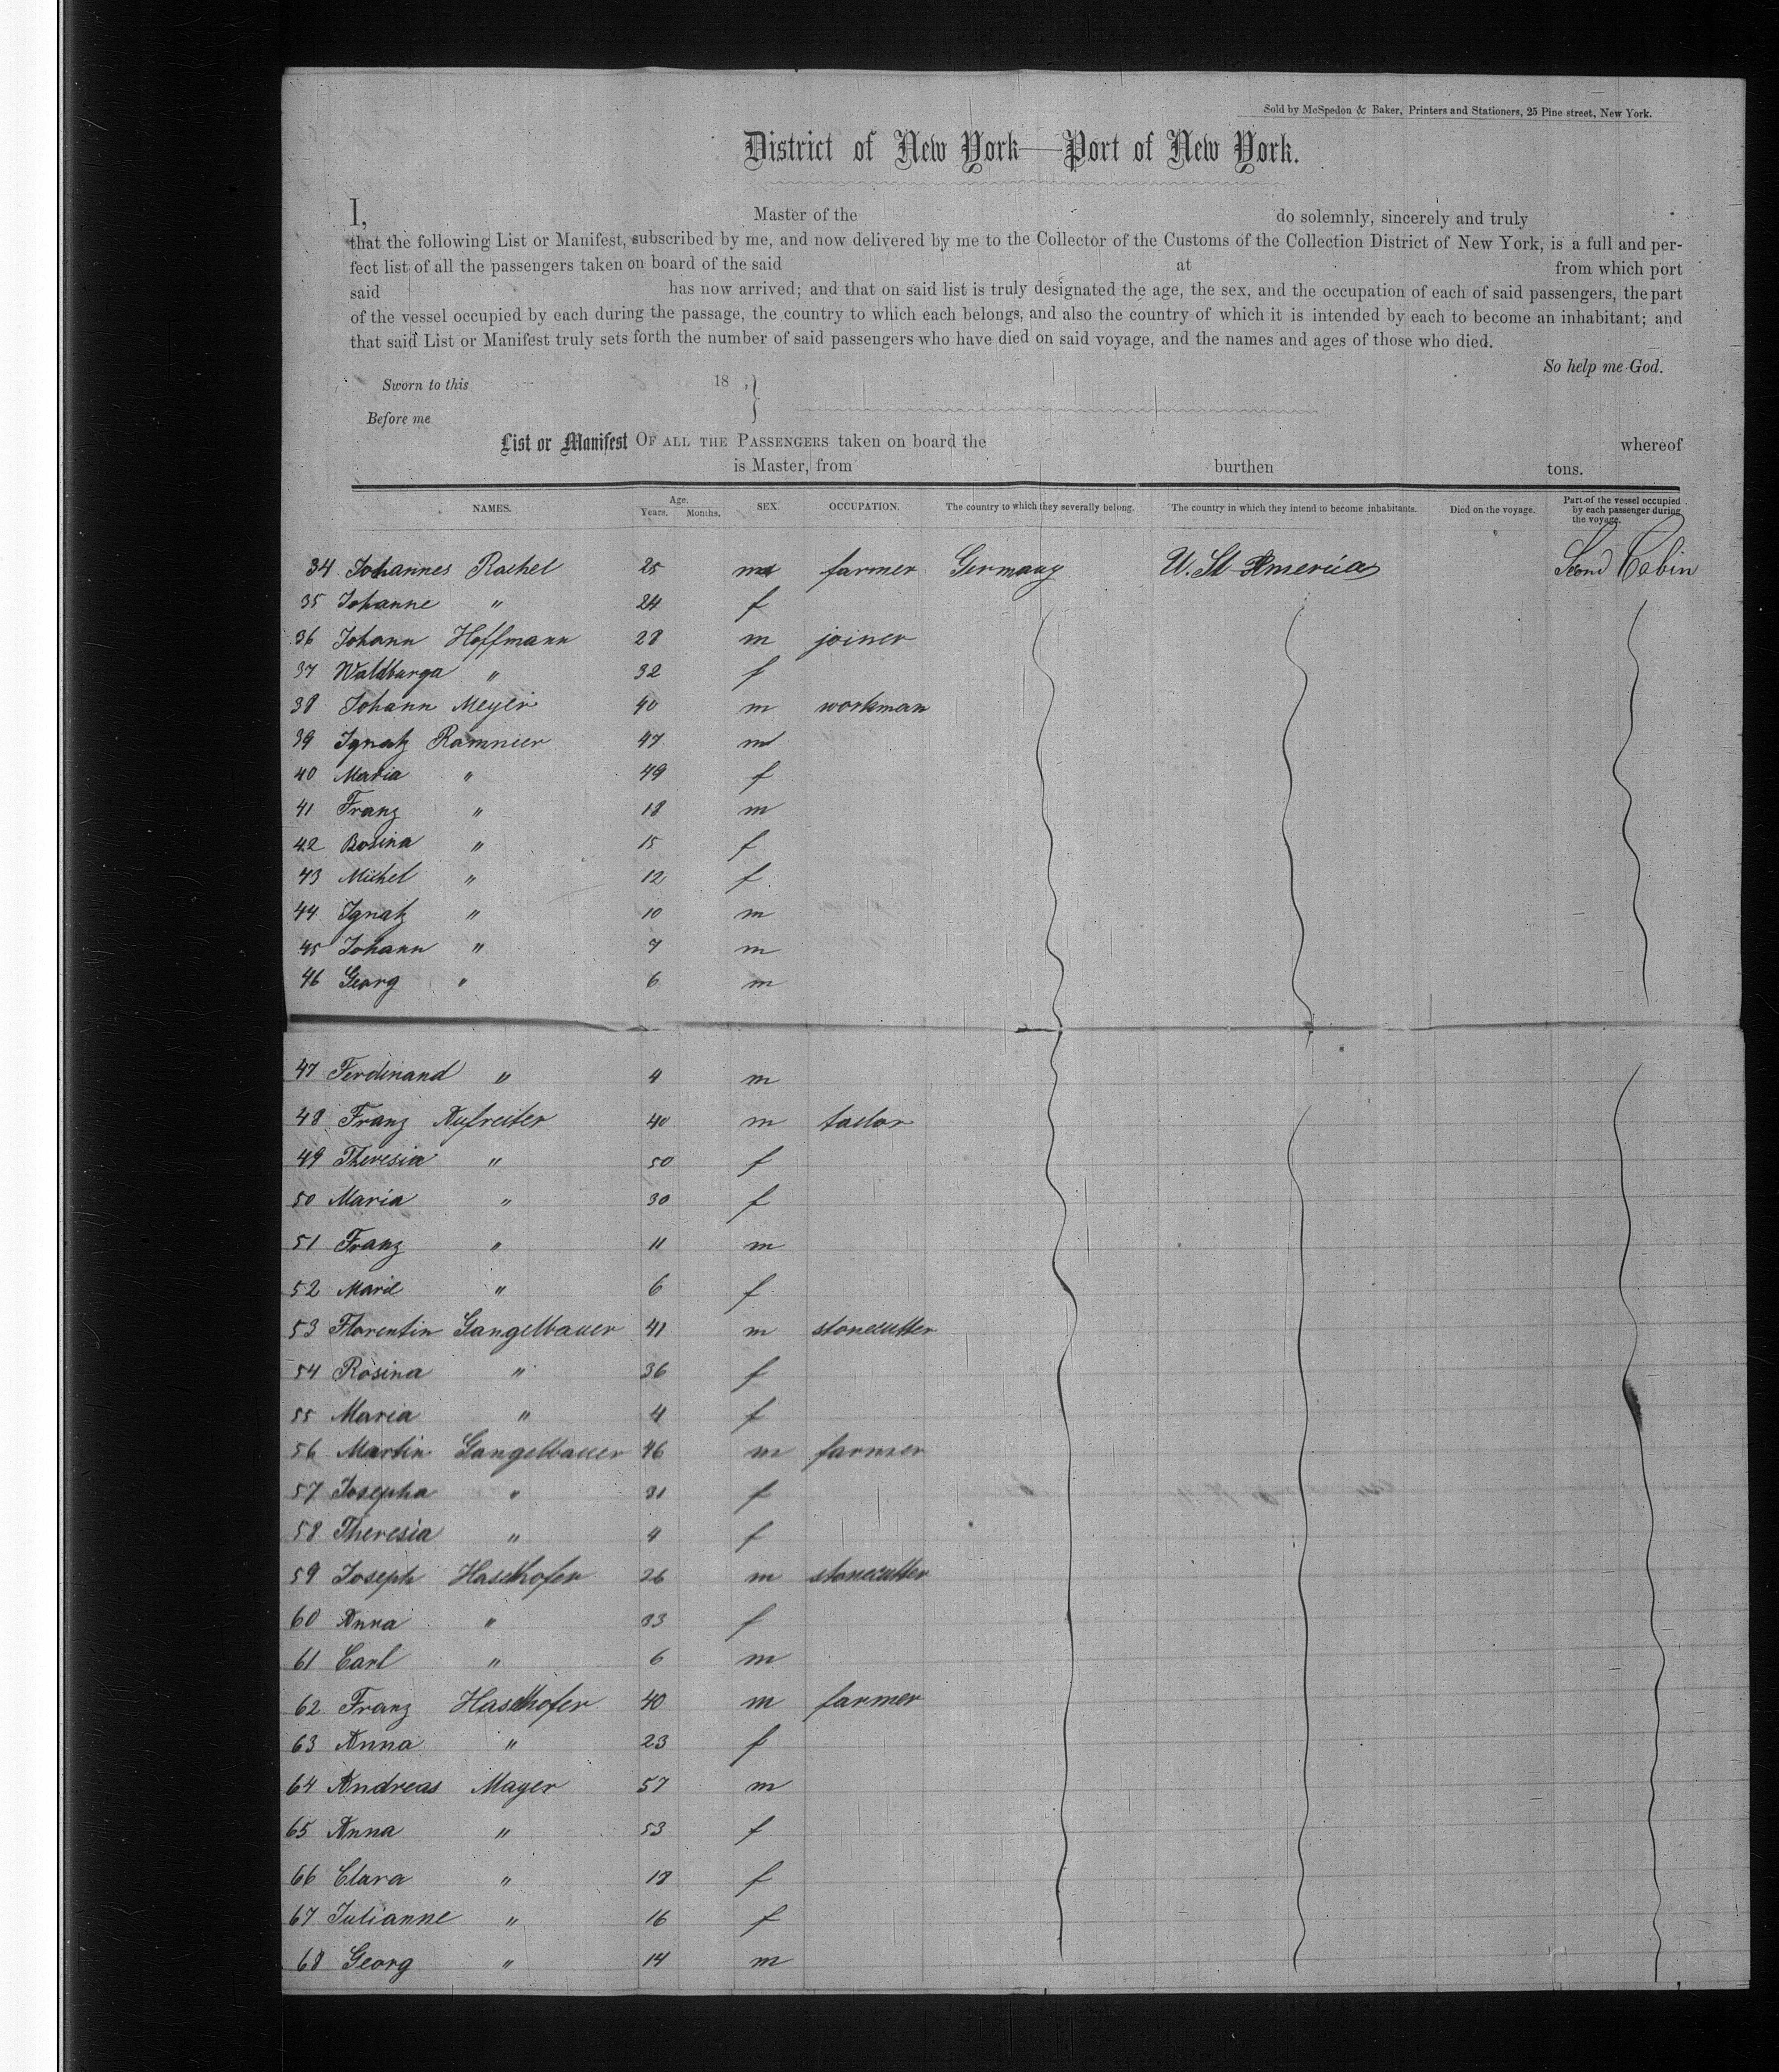 Sold by McSpedon & Baker, Printers and Stationers, 25 Pine street, New York.
District of New York—Port of New York.
I, Master of the do solemnly, sincerely and truly
that the following List or Manifest, subscribed by me, and now delivered by me to the Collector of the Customs of the Collection District of New York, is a full and per-
fect list of all the passengers taken on board of the said at from which port
said has now arrived; and that on said list is truly designated the age, the sex, and the occupation of each of said passengers, the part
of the vessel occupied by each during the passage, the country to which each belongs, and also the country of which it is intended by each to become an inhabitant; and
that said List or Manifest truly sets forth the number of said passengers who have died on said voyage, and the names and ages of those who died.
So help me God.
Sworn to this 18 , }
Before me
List or Manifest OF ALL THE PASSENGERS taken on board the whereof
is Master, from burthen tons.
NAMES. Age. Years. Months. SEX. OCCUPATION. The country to which they severally belong. The country in which they intend to become inhabitants. Died on the voyage. Part of the vessel occupied by each passenger during the voyage.
34 Johannes Rachel 25 m farmer Germany U. St. America Second Cabin
35 Johanne " 24 f
36 Johann Hoffmann 28 m joiner
37 Waldburga " 32 f
38 Johann Meyer 40 m workman
39 Ignatz Ramnier 47 m
40 Maria " 49 f
41 Franz " 18 m
42 Bosina " 15 f
43 Michel " 12 f
44 Ignatz " 10 m
45 Johann " 7 m
46 Georg " 6 m
47 Ferdinand " 4 m
48 Franz Aufreiter 40 m tailor
49 Theresia " 50 f
50 Maria " 30 f
51 Franz " 11 m
52 Marie " 6 f
53 Florentin Gangelbauer 41 m stonecutter
54 Rosina " 36 f
55 Maria " 4 f
56 Martin Gangelbauer 46 m farmer
57 Josepha " 31 f
58 Theresia " 4 f
59 Joseph Haselhofer 26 m stonecutter
60 Anna " 33 f
61 Carl " 6 m
62 Franz Haselhofer 40 m farmer
63 Anna " 23 f
64 Andreas Mayer 57 m
65 Anna " 53 f
66 Clara " 18 f
67 Julianne " 16 f
68 Georg " 14 m